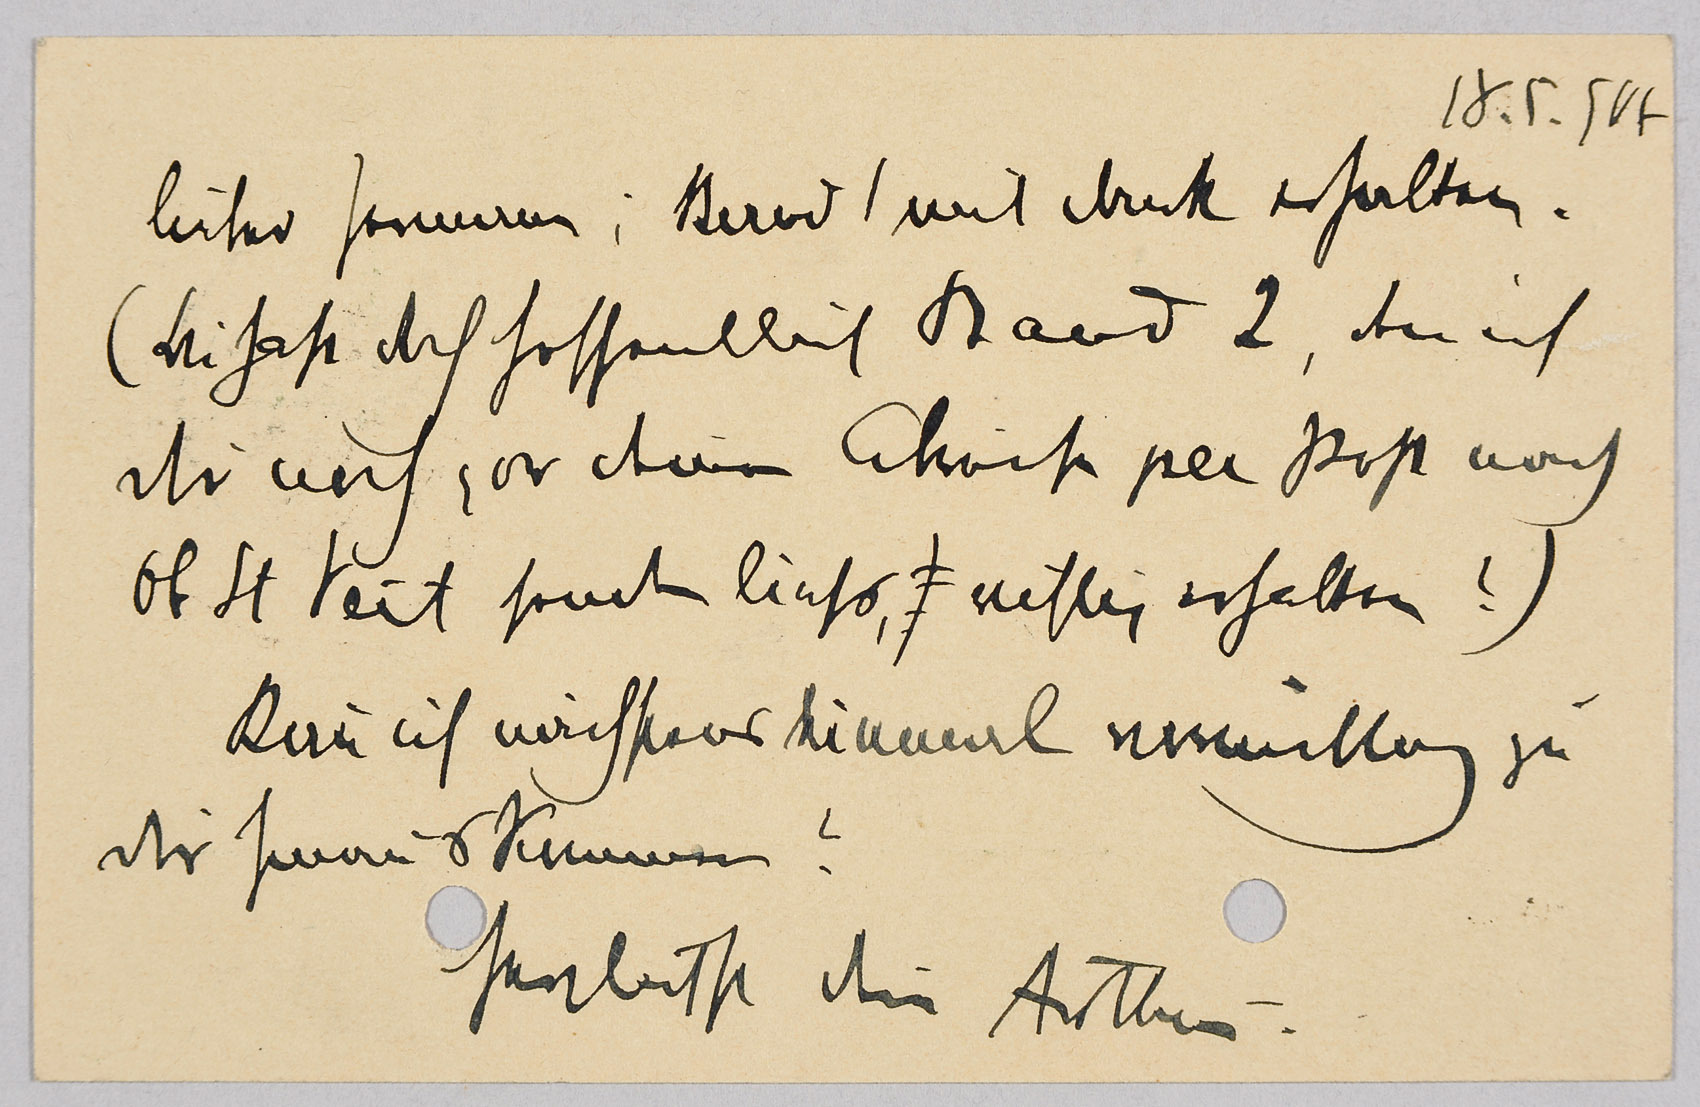 18. 5. 904
lieber Hermann, Band 1 mit Dank erhalten.
(Du hast doch hoffentlich Band 2, den ich
dir noch vor deiner Abreise per Post nach
Ob St Veit senden liess, richtig erhalten?)
Kann ich nächstens einmal vormittag zu
dir hinaus kommen?
herzlichst dein Arthur.